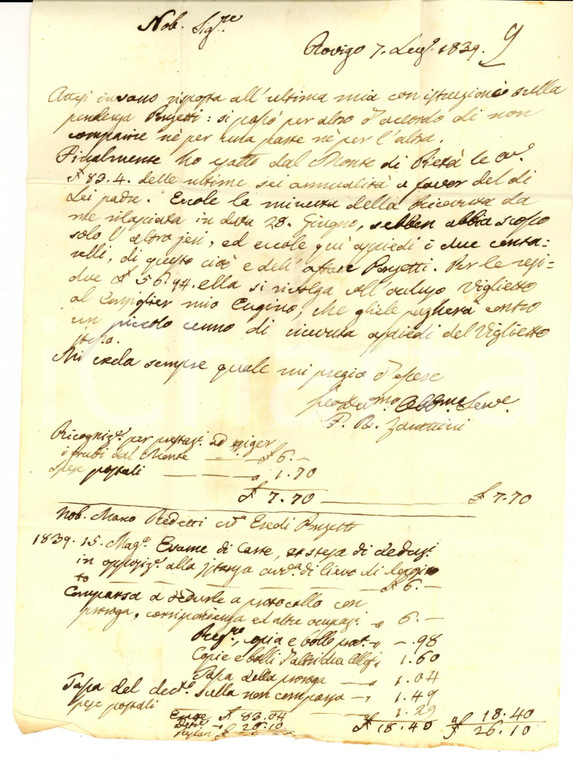 Nob. Sig.re
Rovigo 7. Lug.o 1839.
Attesi invano risposta all'ultima mia con istruzioni sulla
pendenza : si passò per altro d'accordo di non
comparire nè per una parte nè per l'altra.
Finalmente ho esatto dal Monte di Pietà le
£ 83.4. delle ultime sei annualità a favor del di
Lei padre. Eccole la minuta della Ricevuta da
me rilasciata in data 28. Giugno, sebben abbia scosso
solo l'altro jeri, ed eccole qui appiedi i due conta-
relli, di questo cioè e dell'affare. Per le resi-
due £ 56.94. ella si rivolga all'acluso Viglietto
al mio Cugino, che gliele pagherà contro
un piccolo cenno di ricevuta appiedi del Viglietto
stesso.
Mi creda sempre quale mi pregio d'essere
Obb.mo Serv.e
Ricogniz.e per prestaz. ad esiger
i frutti dal Monte £ 6.-
spese postali 1.70
£ 7.70 £ 7.70
Nob. Marco Redetti Eredi
1839. 15. Mag.o Esame di Carte, estesa di deduz.
in opposiz.e alla di
£ 6.-
Comparsa a dedurle a protocollo con
proroga, corrispondenza ed altre occupaz. 6.-
copia e bollo -.98
Copie e bolli 1.60
Tassa della proroga 1.04
Tassa del dec.to sulla non comparsa 1.49
spese postali 1.29
£ 83.04 £ 18.40 18.40
26.10 £ 26.10